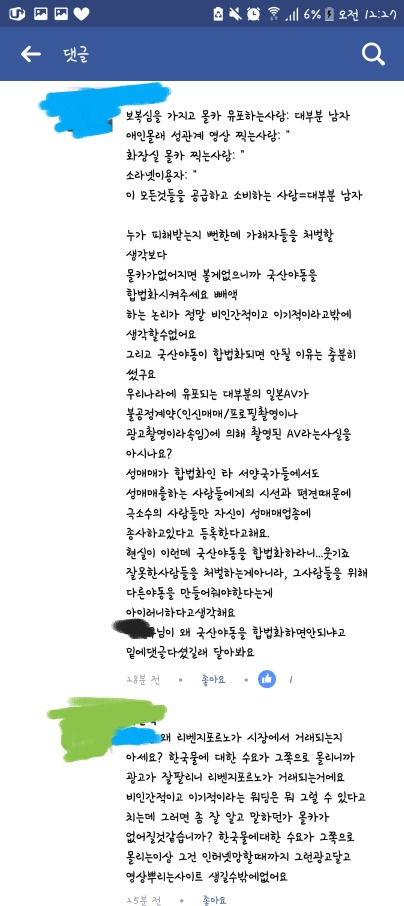 6% 오전 12:27
댓글
보복심을 가지고 몰카 유포하는사람: 대부분 남자
애인몰래 성관계 영상 찍는사람: "
화장실 몰카 찍는사람: "
소라넷이용자: "
이 모든것들을 공급하고 소비하는 사람=대부분 남자
누가 피해받는지 뻔한데 가해자들을 처벌할
생각보다
몰카가없어지면 볼게없으니까 국산야동을
합법화시켜주세요 빼액
하는 논리가 정말 비인간적이고 이기적이라고밖에
생각할수없어요
그리고 국산야동이 합법화되면 안될 이유는 충분히
썼구요
우리나라에 유포되는 대부분의 일본AV가
불공정계약(인신매매/프로필촬영이나
광고촬영이라속임)에 의해 촬영된 AV라는사실을
아시나요?
성매매가 합법화인 타 서양국가들에서도
성매매를하는 사람들에게의 시선과 편견때문에
극소수의 사람들만 자신이 성매매업종에
종사하고있다고 등록한다고해요.
현실이 이런데 국산야동을 합법화하라니...웃기죠
잘못한사람들을 처벌하는게아니라, 그사람들을 위해
다른야동을 만들어줘야한다는게
아이러니하다고생각해요
님이 왜 국산야동을 합법화하면안되냐고
밑에댓글다셨길래 달아봐요
28분 전 • 좋아요 • 1
왜 리벤지포르노가 시장에서 거래되는지
아세요? 한국물에 대한 수요가 그쪽으로 몰리니까
광고가 잘팔리니 리벤지포르노가 거래되는거에요
비인간적이고 이기적이라는 워딩은 뭐 그럴 수 있다고
치는데 그러면 좀 잘 알고 말하던가 몰카가
없어질것같습니까? 한국물에대한 수요가 그쪽으로
몰리는이상 그건 인터넷망할때까지 그런광고달고
영상뿌리는사이트 생길수밖에없어요
25분 전 • 좋아요